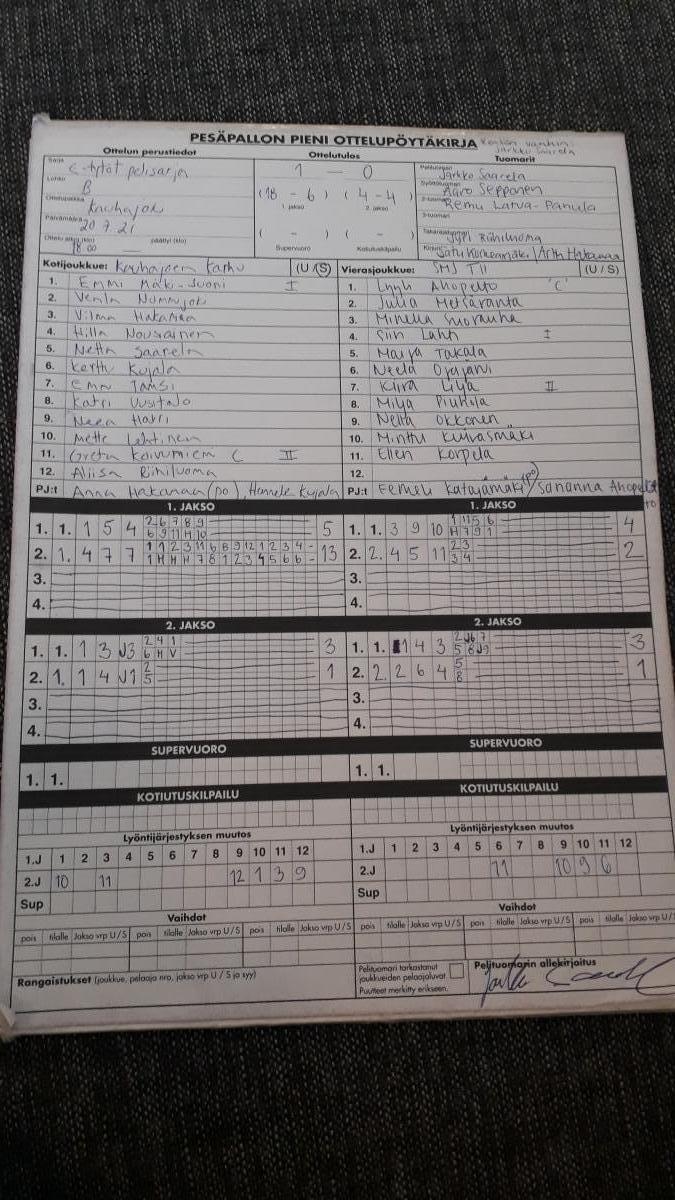 PESÄPALLON PIENI OTTELUPÖYTÄKIRJA
Järkko Saarela
Ottelun perustiedot
Ottelutulos
Tuomarit
Sarja
E-tytöt pelisarja
Lohko
B
Ottelupaikka
Kauhajoki
Päivämäärä
20.7.21
Ottelu alkoi (klo) päättyi (klo)
18.00
1 — 0
(18 - 6) (4 - 4)
1. jakso 2. jakso
( - ) ( - )
Supervuoro Kotiutuskilpailu
Pelituomari
Järkko Saarela
Syöttötuomari
Aaro Sepponen
2-tuomari
Remu Latva-Panula
3-tuomari
Takarajatuomari
Jyri Riihiluoma
Kirjuri
Kotijoukkue: Kauhajoen Karhu (U/S)
1. Emmi Mäki-Jouni I
2. Venla Nummijoki
3. Vilma Hakamaa
4. Hilla Nousiainen
5. Netta Saarela
6. Kerttu Kujala
7. Emma Jämsi
8. Katri Uusitalo
9. Neea Harri
10. Mette Lehtinen
11. Greta Koivuniemi C II
12. Aliisa Riihiluoma
PJ:t Anna Hakamaa (po), Hannele Kujala
Vierasjoukkue: SMJ T11 (U/S)
1. Lyyli Ahopelto 'C'
2. Julia Metsäranta
3. Minella Suorauha
4. Siiri Lahti I
5. Maija Takala
6. Neela Ojajärvi
7. Kiira Lilja II
8. Milja Piuhola
9. Nella Okkonen
10. Minttu Kuivasmäki
11. Ellen Korpela
12.
PJ:t Eemeli Katajamäki (po) / Sananna Ahopelto
1. JAKSO
1. 1. 1 5 4 2 6 7 8 9 5
6 9 11 H 10
2. 1. 4 7 7 1 1 2 3 11 6 8 9 12 1 2 3 4 - 13
1 H H H 7 8 1 2 3 4 5 6 6 -
3.
4.
1. JAKSO
1. 1. 3 9 10 1 11 5 6 4
H 7 9 1
2. 2. 4 5 11 2 3 2
3 4
3.
4.
2. JAKSO
1. 1. 1 3 J3 2 4 1 3
6 H V
2. 1. 1 4 J1 2 1
5
3.
4.
2. JAKSO
1. 1. 1 4 3 2 J6 7 3
5 8 J9
2. 2. 2 6 4 5 1
8
3.
4.
SUPERVUORO
1. 1.
SUPERVUORO
1. 1.
KOTIUTUSKILPAILU
KOTIUTUSKILPAILU
Lyöntijärjestyksen muutos
1.J 1 2 3 4 5 6 7 8 9 10 11 12
2.J 10 11 12 1 3 9
Sup
Lyöntijärjestyksen muutos
1.J 1 2 3 4 5 6 7 8 9 10 11 12
2.J 11 10 9 6
Sup
Vaihdot
pois tilalle Jakso vrp U/S pois tilalle Jakso vrp U/S pois tilalle Jakso vrp U/S
Vaihdot
pois tilalle Jakso vrp U/S pois tilalle Jakso vrp U/S pois tilalle Jakso vrp U/S
Rangaistukset (joukkue, pelaaja nro, jakso vrp U / S ja syy)
Pelituomari tarkastanut
joukkueiden pelaajaluvat.
Puutteet merkitty erikseen.
Pelituomarin allekirjoitus